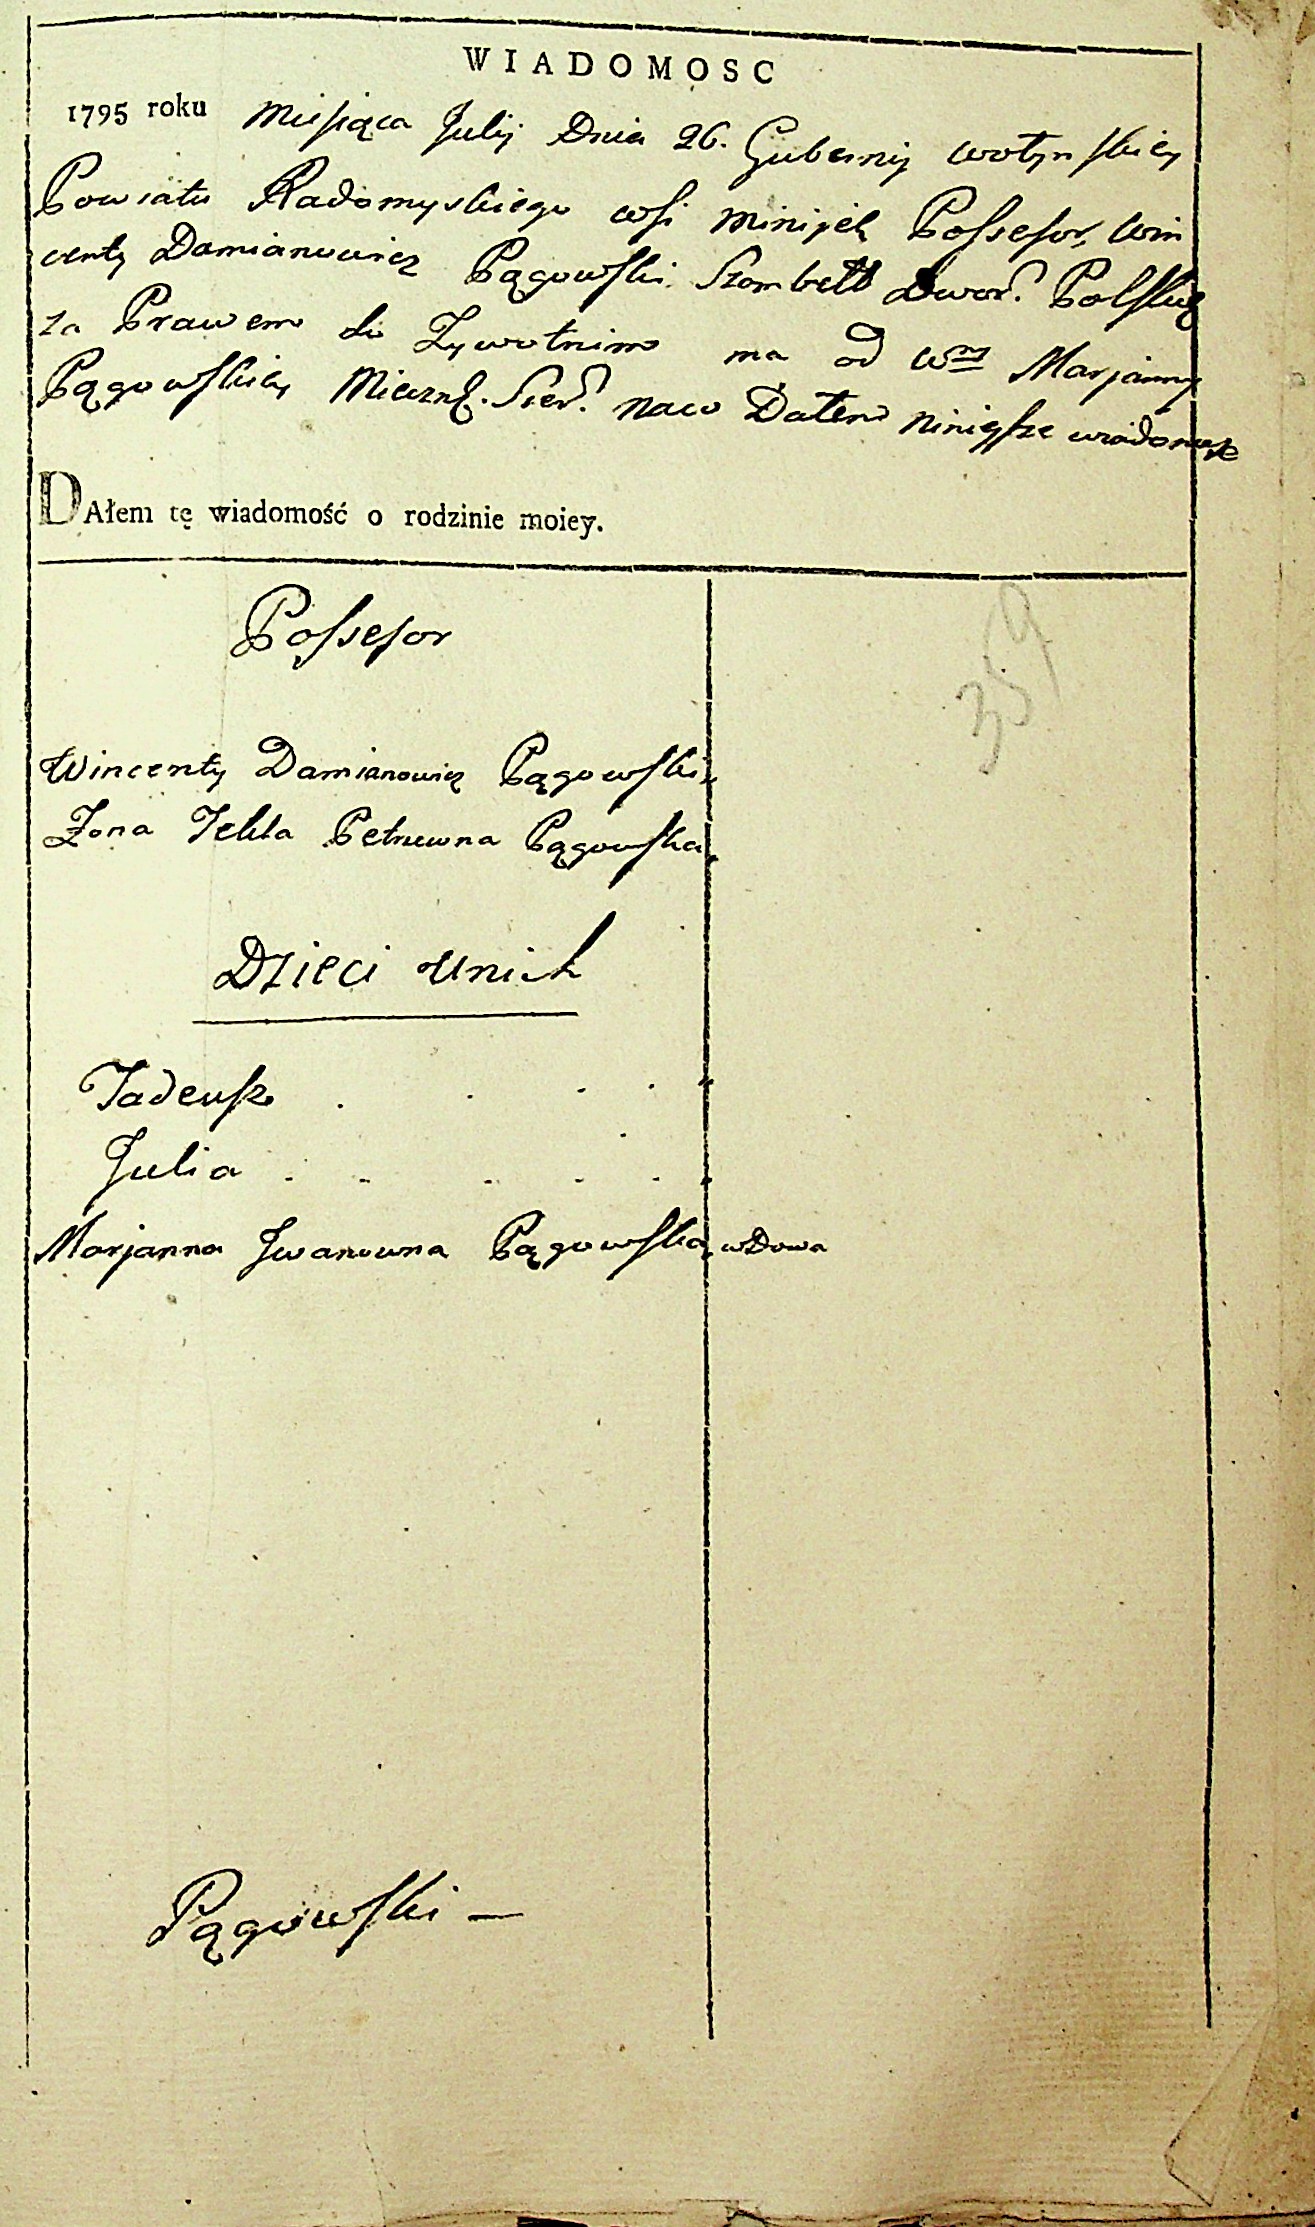 WIADOMOSC
1795 roku Miesiąca Julij Dnia 26. Gubernij wołynskiey
Powiatu Radomyskiego wsi Minijek Possesor, Win
centy Damianowicz Pągowski Szambell Dwor. Polskie
za Prawem do Zywotnim ma od Wney Marjanny
Pągowskiey Mieczni. Sier. Naco Dałem niniejsze wiadomosc
DAłem tę wiadomość o rodzinie moiey.
Possesor
359
Wincenty Damianowicz Pągowski
Zona Tekla Petruwna Pągowska
Dzieci unich
Tadeusz . . . . "
Julia . . . . . "
Marjanna Jwanowna Pągowska, wdowa
Pągowski —